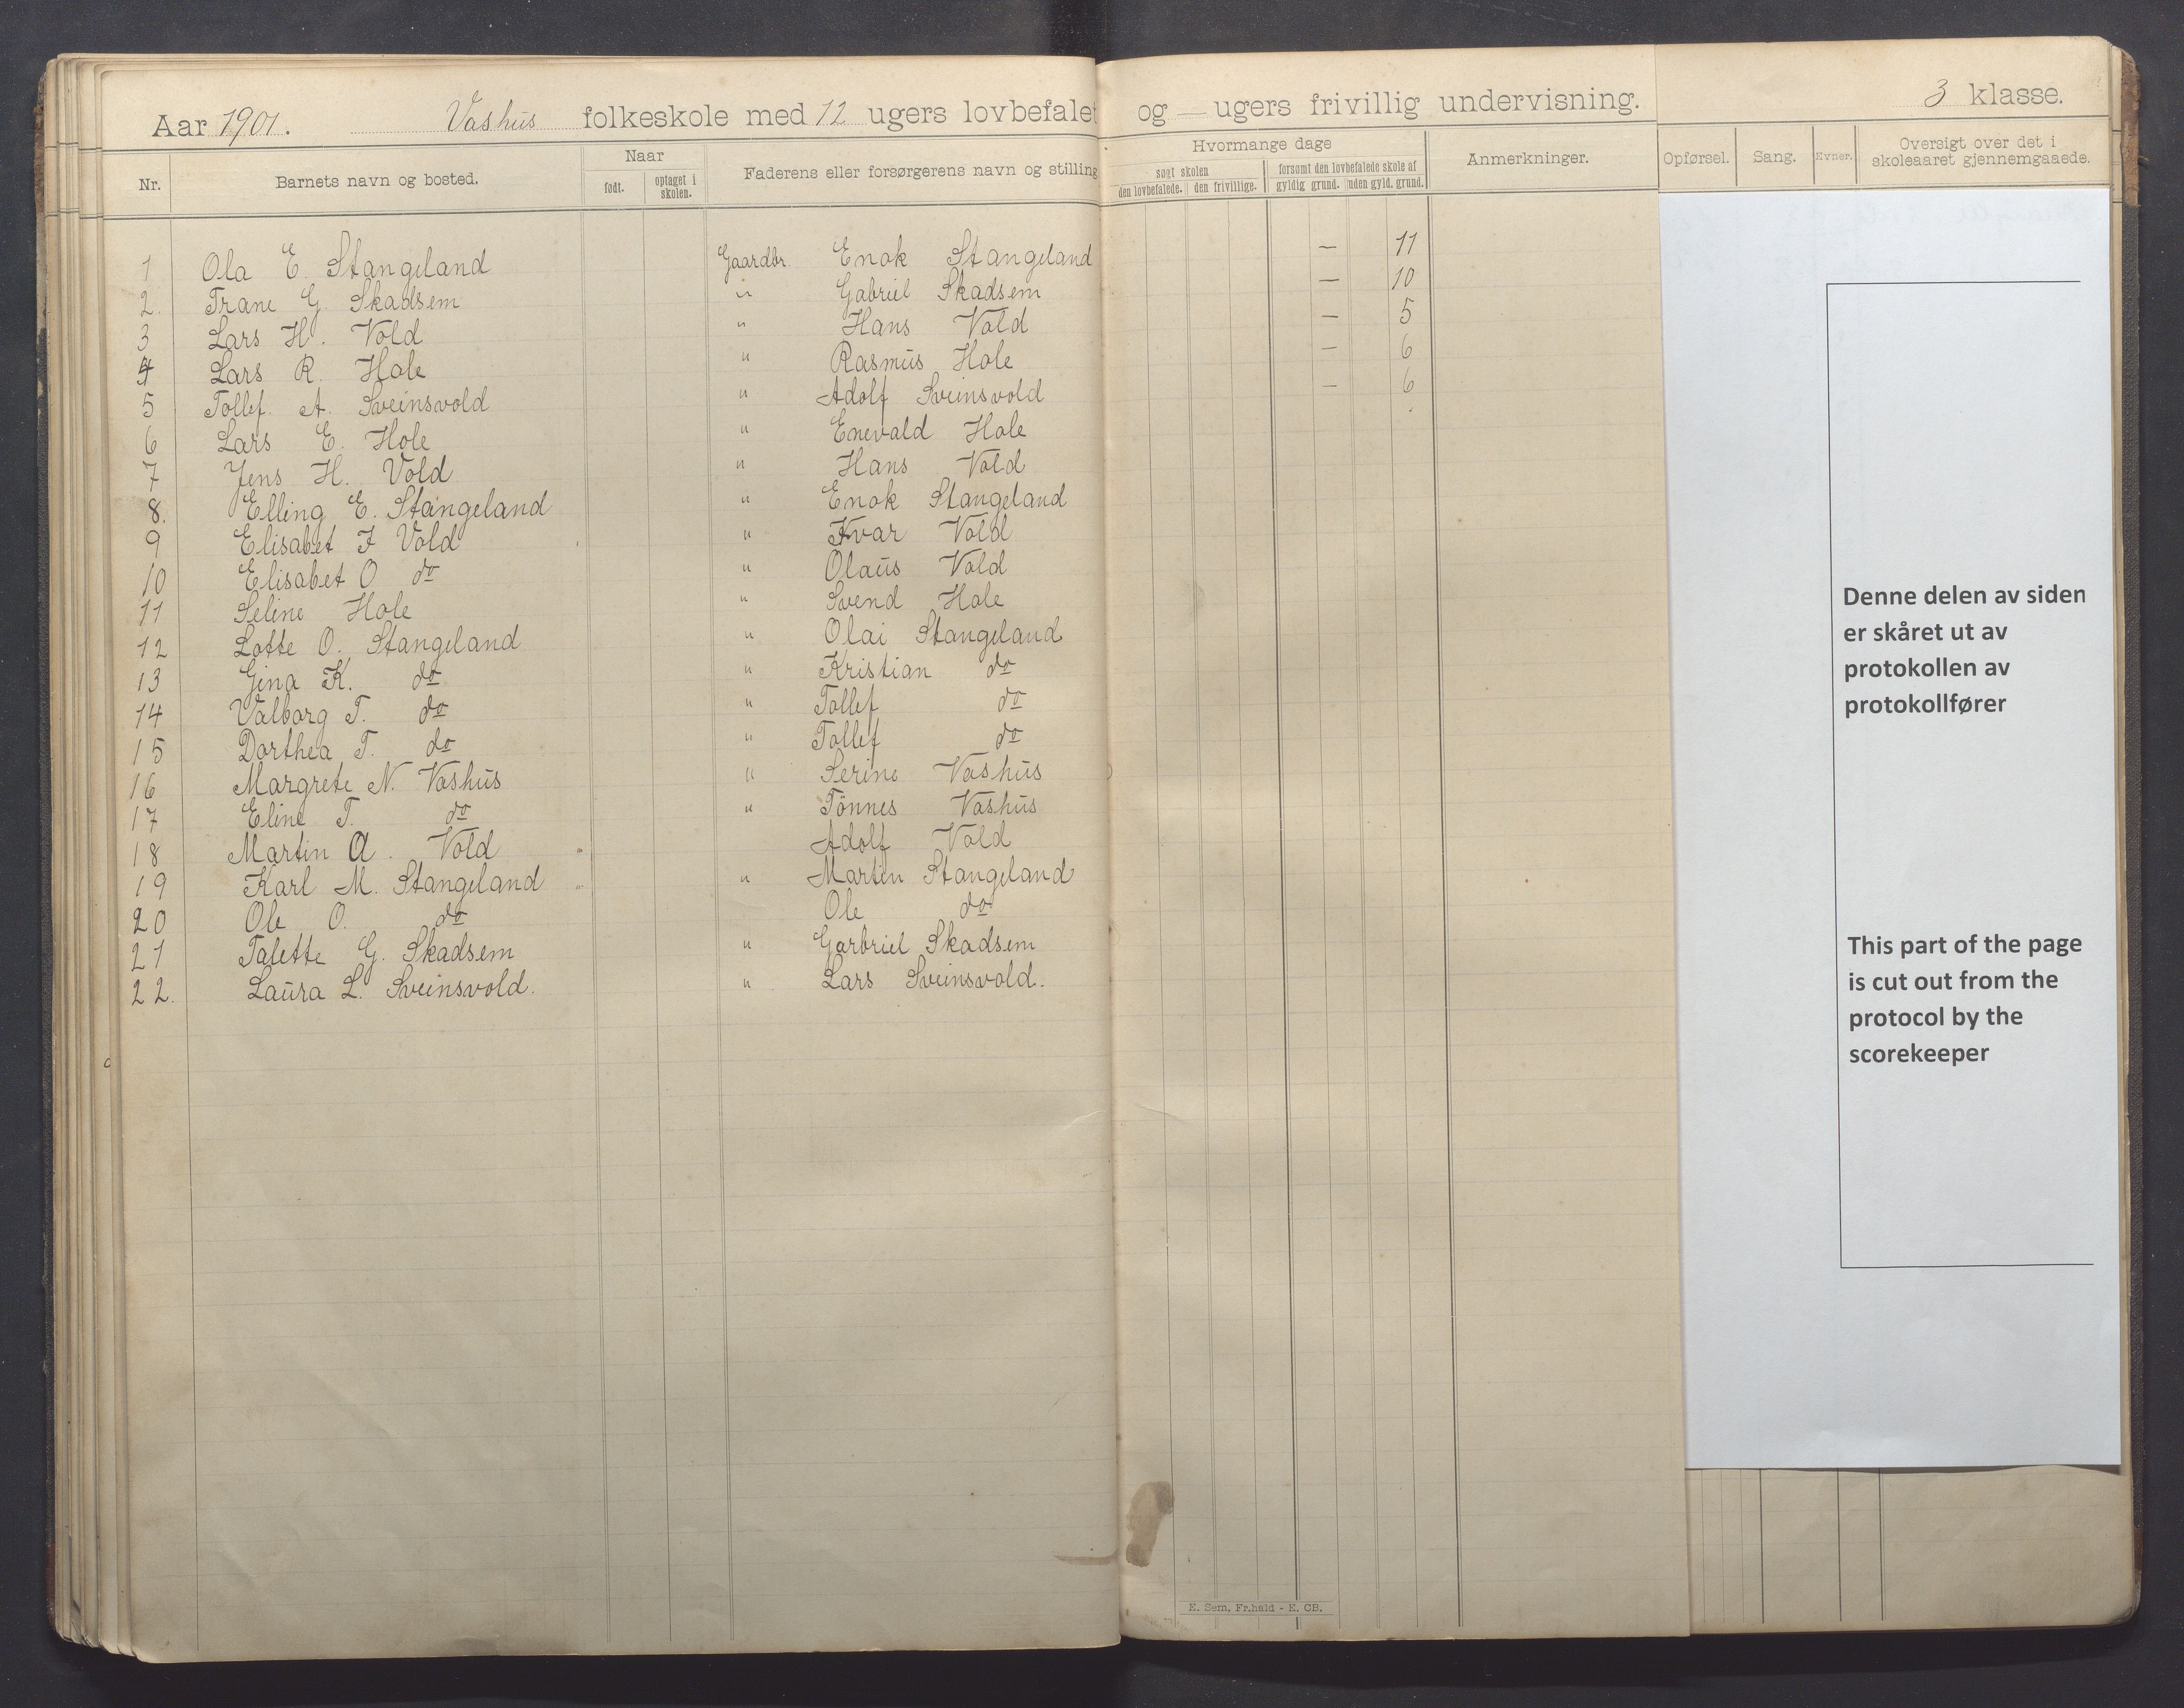 Aar 1901. Vashus folkeskole med 12 ugers lovbefalet og — ugers frivillig undervisning. 3 klasse.
Nr. Barnets navn og bosted. Naar født. optaget i skolen. Faderens eller forsørgerens navn og stilling Hvormange dage søgt skolen den lovbefalede. den frivillige. forsømt den lovbefalede skole af gyldig grund. uden gyld. grund. Anmerkninger. Opførsel. Sang. Evner. Oversigt over det i skoleaaret gjennemgaaede.
1 Ola E. Stangeland Gaardbr. Enok Stangeland — 11
2. Trane G. Skadsem " Gabriel Skadsem — 10
3 Lars H. Vold " Hans Vold — 5
4 Lars R. Hole " Rasmus Hole — 6
5 Tollef. A. Sveinsvold " Adolf Sveinsvold — 6
6 Lars E. Hole " Enevald Hole
7 Jens H. Vold " Hans Vold
8. Elling E. Stangeland " Enok Stangeland
9 Elisabet I Vold " Ivar Vold
10 Elisabet O do " Olaus Vold
11 Seline Hole " Svend Hole
12 Lotte O. Stangeland " Olai Stangeland
13 Gina K. do " Kristian do
14 Valborg T. do " Tollef do
15 Dorthea T. do " Tollef do
16 Margrete N. Vashus " Serine Vashus
17 Eline T. do " Tönnes Vashus
18 Martin A. Vold Adolf Vold
19 Karl M. Stangeland " Martin Stangeland
20 Ole O. do Ole do
21 Talette G. Skadsem " Garbriel Skadsem
22. Laura L. Sveinsvold. " Lars Sveinsvold.
Denne delen av siden
er skåret ut av
protokollen av
protokollfører
This part of the page
is cut out from the
protocol by the
scorekeeper
E. Sem, Fr.hald - E. CB.